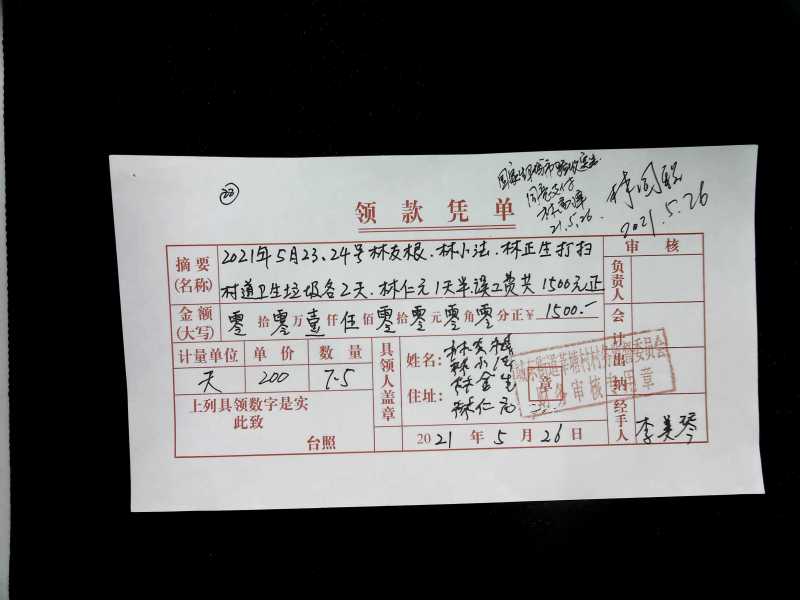 22
同意支付
21.5.26.
2021.5.26
领款凭单
摘要(名称) 2021年5月23、24号林友根、林小法、林正生打扫
村道卫生垃圾各2天、林仁元1天半误工费共1500元正
审核
负责人
金额(大写) 零拾零万壹仟伍佰零拾零元零角零分正¥1500.-
会计
计量单位 单价 数量
天 200 7.5
具领人盖章
姓名: 林友根
林小法
住址:
林仁元
章
出纳
村务监督委员会
财务审核专用章
上列具领数字是实
此致
台照
2021年5月26日
经手人 李美琴